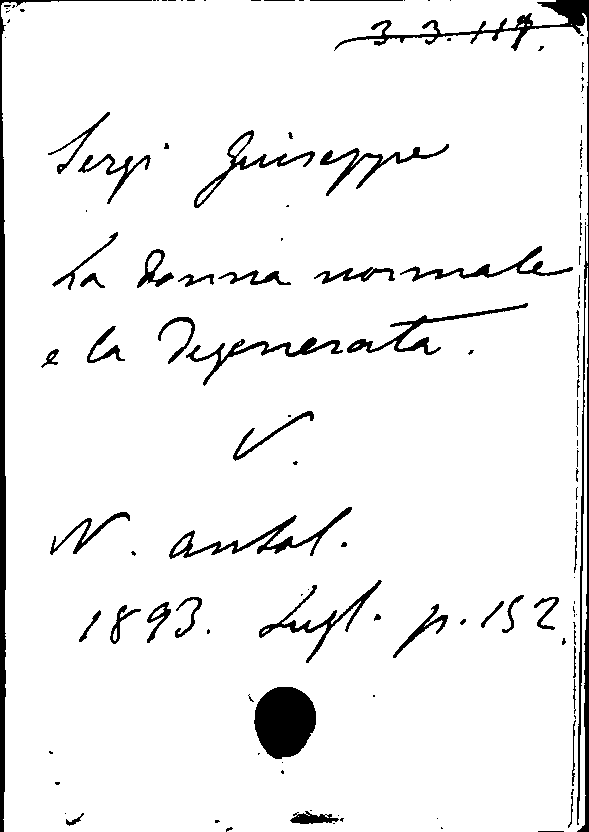 3.3.117.
Sergi Giuseppe
La donna normale
e la degenerata.
V.
N. antol.
1893. Lugl. p. 152.